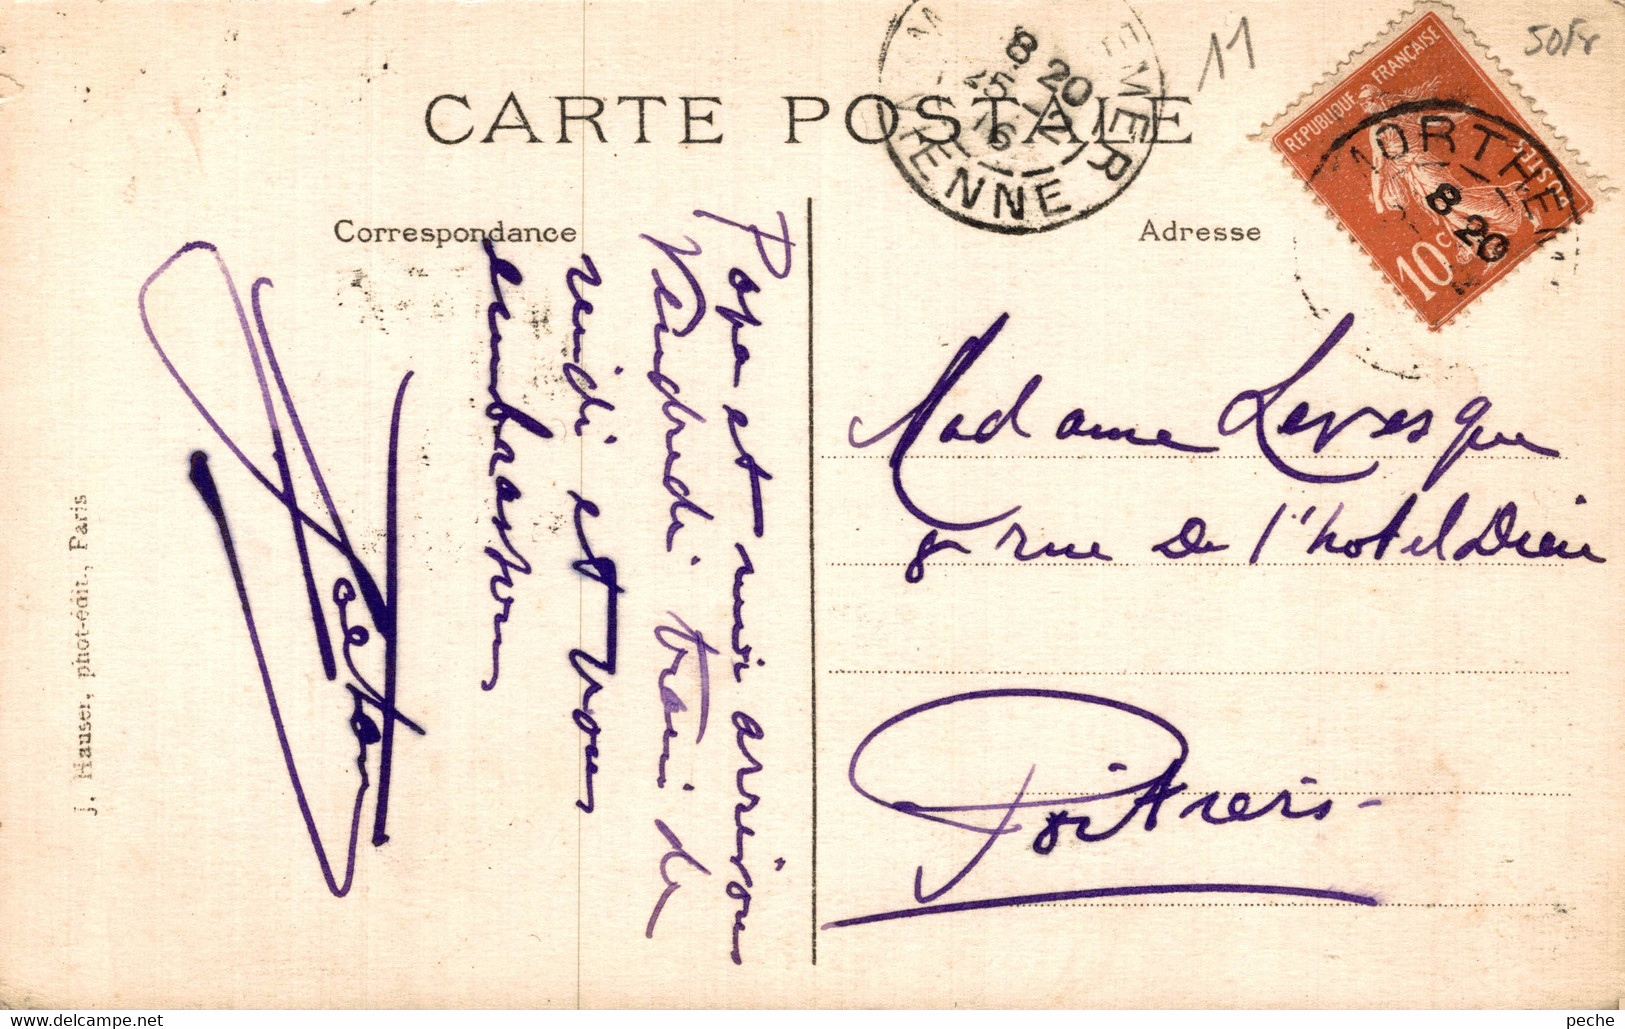 CARTE POSTALE
Correspondance
Adresse
11
50Fr
8 20
25
16
VIENNE
REPUBLIQUE FRANÇAISE
POSTES
10c
MORTHEM
8 20
Papa et moi arrivons
Vendredi train de
midi et vous
embrassons
Gaetan
Madame Levesque
8 rue de l'hotel Dieu
Poitiers
J. Hauser, phot-édit., Paris
peche